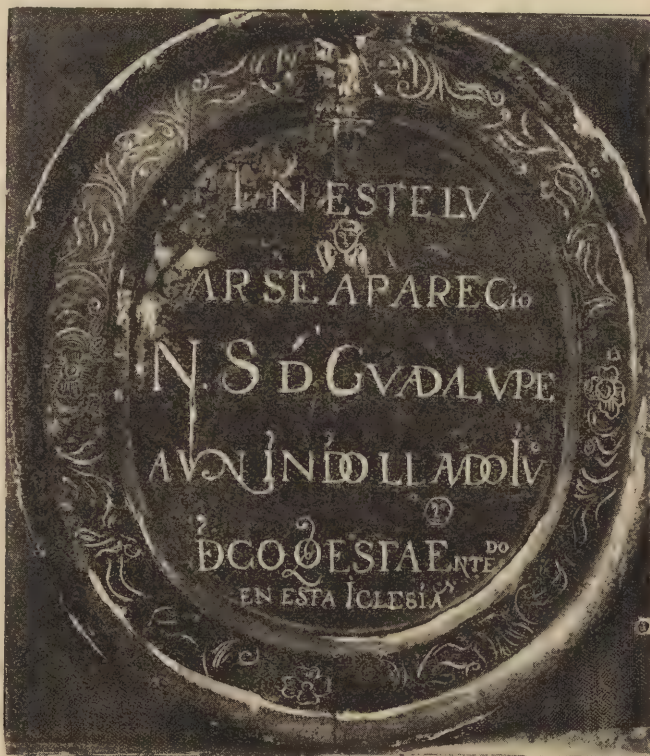 EN ESTE LV
AR SE APARECio
N. S D GVADALVPE
A VN INDO LLAMDO IV
DGO Q ESTA ENTEDO
EN ESTA IGLESIA